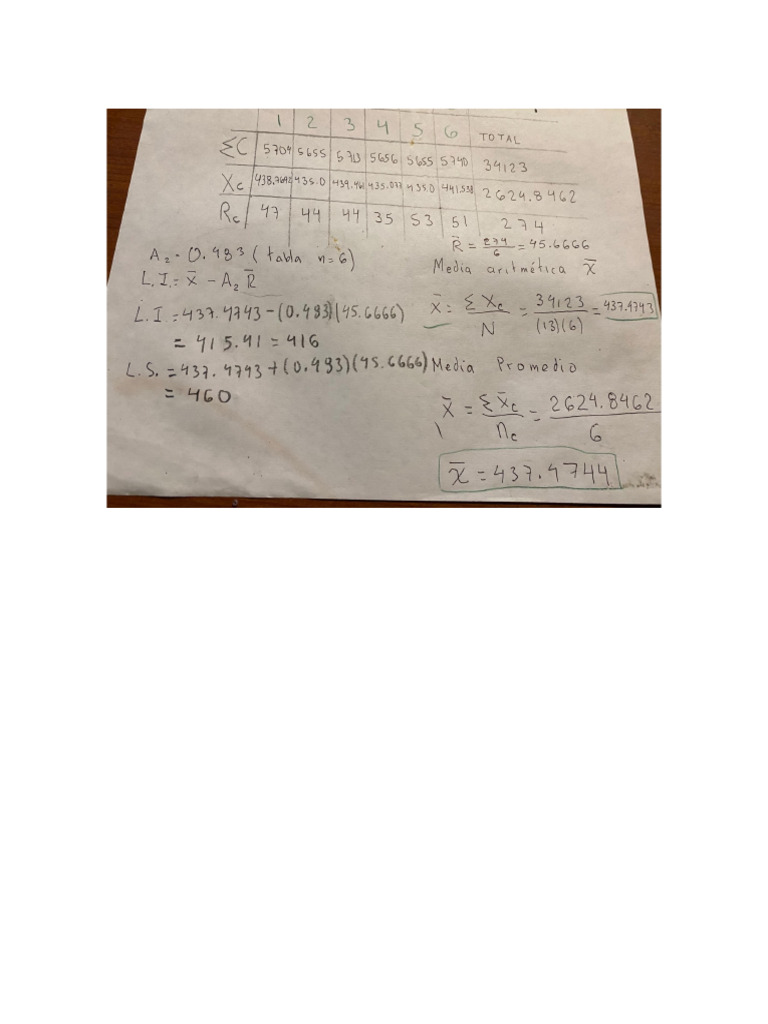 1 2 3 4 5 6 TOTAL
ΣC 5704 5655 5713 5656 5655 5740 34123
Xc 438.7692 435.0 439.461 435.077 435.0 441.538 2624.8462
Rc 47 44 44 35 53 51 274
A₂ = 0.483 (tabla n=6)
R̄ = 274/6 = 45.6666
L.I. = x̄ - A₂ R̄
Media aritmética x̄
L.I. = 437.4743 - (0.483)(45.6666)
= 415.41 = 416
x̄ = ΣXc/N = 34123/(13)(6) = 437.4743
L.S. = 437.4743 + (0.483)(45.6666)
= 460
Media Promedio
x̄ = Σx̄c/nc = 2624.8462/6
x̄ = 437.4744